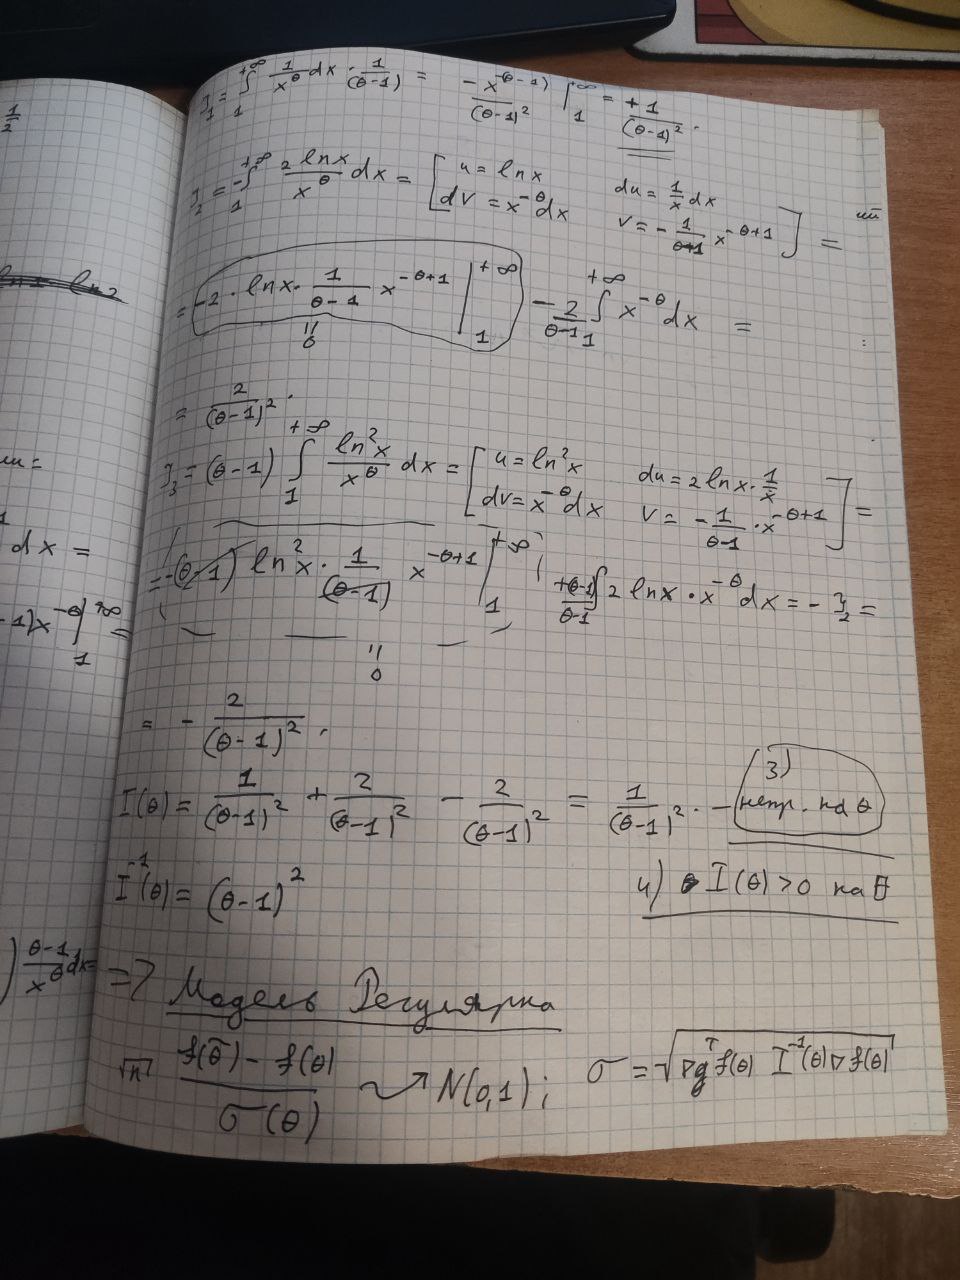 1/2
J₁ = ∫₁^{+∞} 1/x^θ dx · 1/(θ-1) = -x^{-(θ-1)}/(θ-1)² |₁^{+∞} = +1/(θ-1)².
J₂ = -∫₁^{+∞} 2 ln x/x^θ dx = [ u = ln x   du = 1/x dx
dv = x^{-θ} dx   v = -1/(θ-1) x^{-θ+1} ] =
= -2 · ln x · 1/(θ-1) x^{-θ+1} |₁^{+∞} - 2/(θ-1) ∫₁^{+∞} x^{-θ} dx =
"
0
= 2/(θ-1)².
J₃ = (θ-1) ∫₁^{+∞} ln²x/x^θ dx = [ u = ln²x   du = 2 ln x · 1/x
dv = x^{-θ} dx   v = -1/(θ-1) · x^{-θ+1} ] =
= -(θ-1) ln²x · 1/(θ-1) x^{-θ+1} |₁^{+∞} + (θ-1)/(θ-1) ∫ 2 ln x · x^{-θ} dx = -J₂ =
"
0
= - 2/(θ-1)².
I(θ) = 1/(θ-1)² + 2/(θ-1)² - 2/(θ-1)² = 1/(θ-1)². - 3) непр. на Θ
I^{-1}(θ) = (θ-1)²
4) I(θ) > 0 на Θ
=> Модель Регулярна
√n (f(θ̃) - f(θ))/σ(θ) ⤳ N(0,1); σ = √(∇g^T f(θ) I^{-1}(θ) ∇f(θ))
dx =
-1)x^{-θ} |₁^{+∞} =
) (θ-1)/x^θ dx =